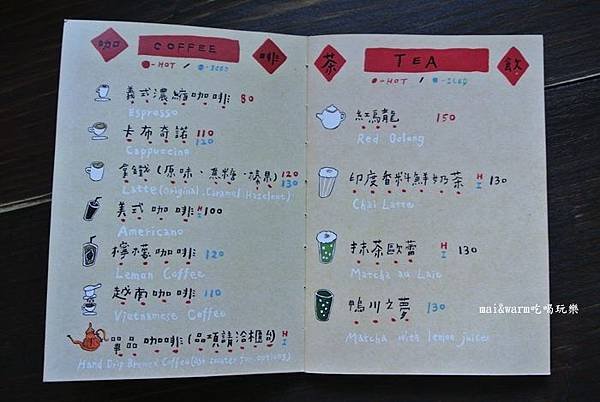 咖 COFFEE 啡
●-HOT / ●-ICED
義式濃縮咖啡 80
Espresso
卡布奇諾 110 120
Cappuccino
拿鐵(原味、焦糖、榛果) 120 130
Latte(Original.Caramel.Hazelnut)
美式咖啡 H I 100
Americano
檸檬咖啡 120
Lemon Coffee
越南咖啡 110
Vietnamese Coffee
單品咖啡(品項請洽櫃台) H I
Hand Drip Brewed Coffee(Ask waiter for options)
茶 TEA 飲
●-HOT / ●-ICED
紅烏龍 150
Red Oolong
印度香料鮮奶茶 H I 130
Chai Latte
抹茶歐蕾 H I 130
Matcha au Lait
鴨川之夢 130
Matcha with lemon juice
mai&warm吃喝玩樂